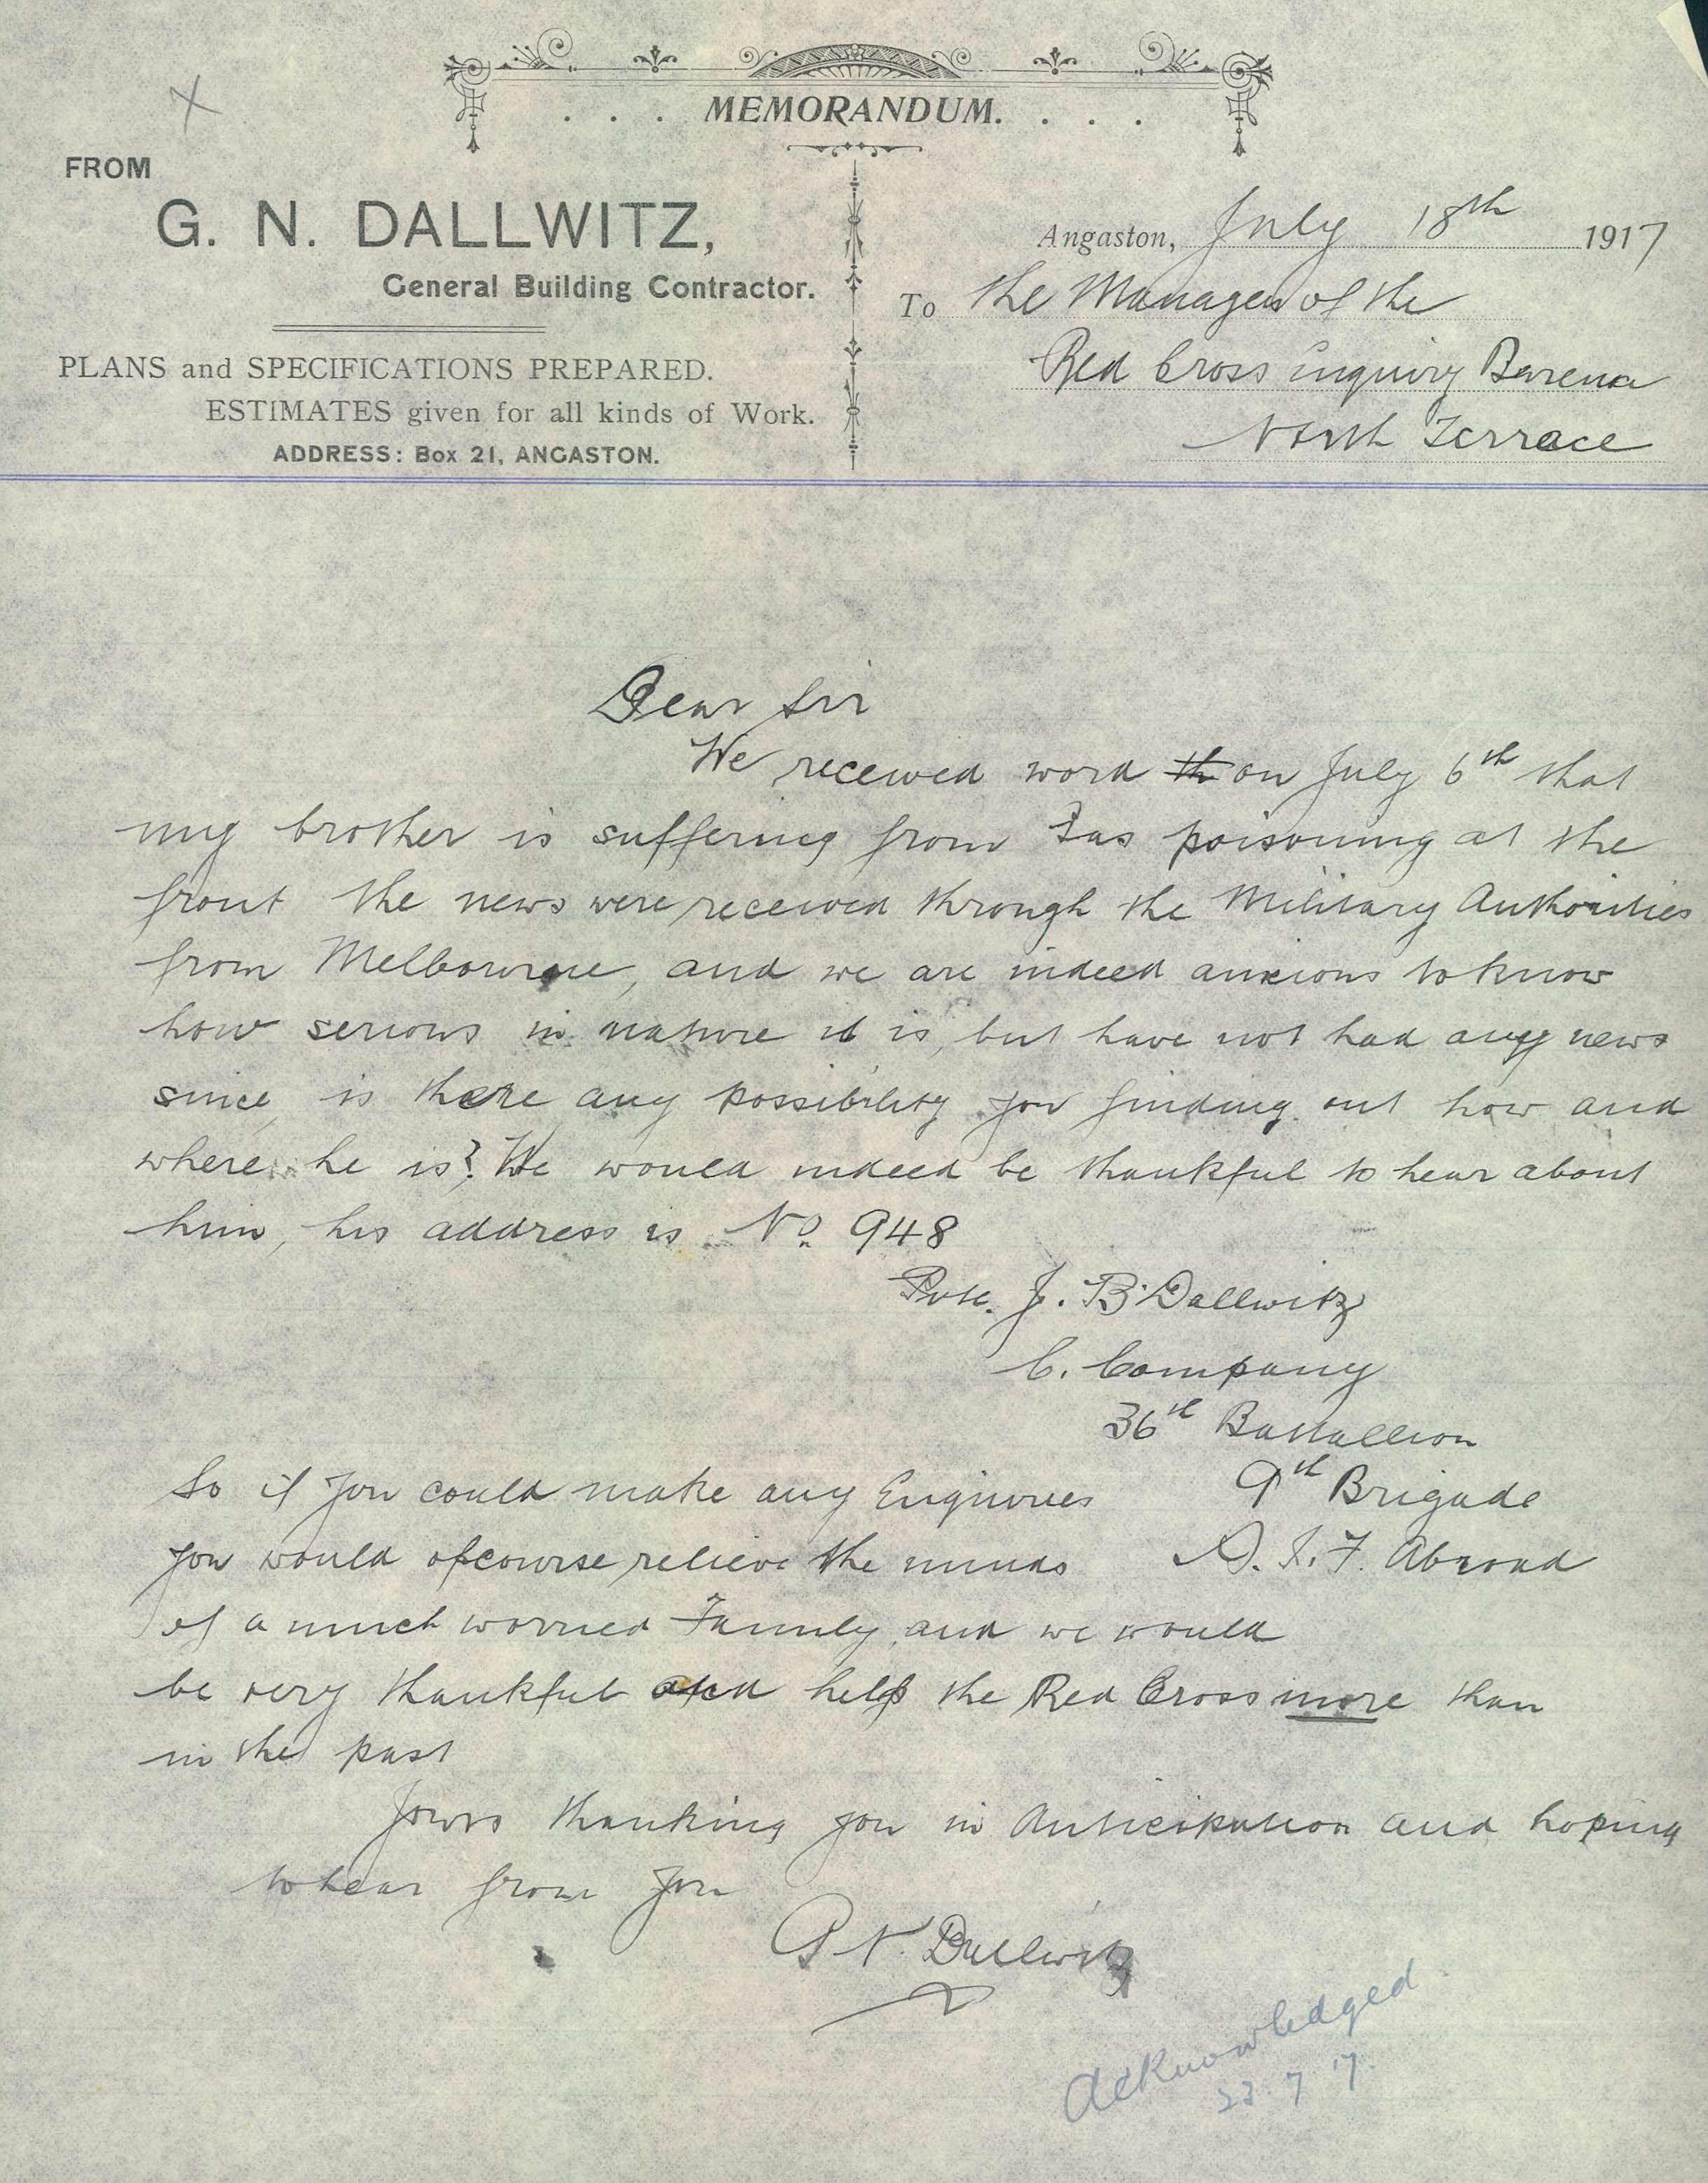 MEMORANDUM.
FROM
G. N. DALLWITZ,
General Building Contractor.
PLANS and SPECIFICATIONS PREPARED.
ESTIMATES given for all kinds of Work.
ADDRESS: Box 21, ANGASTON.
Angaston, July 18th 1917
To the Manager of the
Red Cross inquiry Bureau
North Terrace
Dear Sir
We received word th on July 6th that
my brother is suffering from Gas poisoning at the
front the news were received through the Military Authorities
from Melbourne, and we are indeed anxious to know
how serious in nature it is, but have not had any news
since, is there any possibility for finding out how and
where he is? We would indeed be thankful to hear about
him, his address is No. 948
Pvte. J. B. Dallwitz
C. Company
36th Battallion
9th Brigade
A. I. F. Abroad
So if you could make any Enquiries
you would ofcourse relieve the minds
of a much worried Family, and we would
be very thankful and help the Red Cross more than
in the past
Yours thanking you in Anticipation and hoping
to hear from you
G N. Dallwitz
Acknowledged
23.7.17.